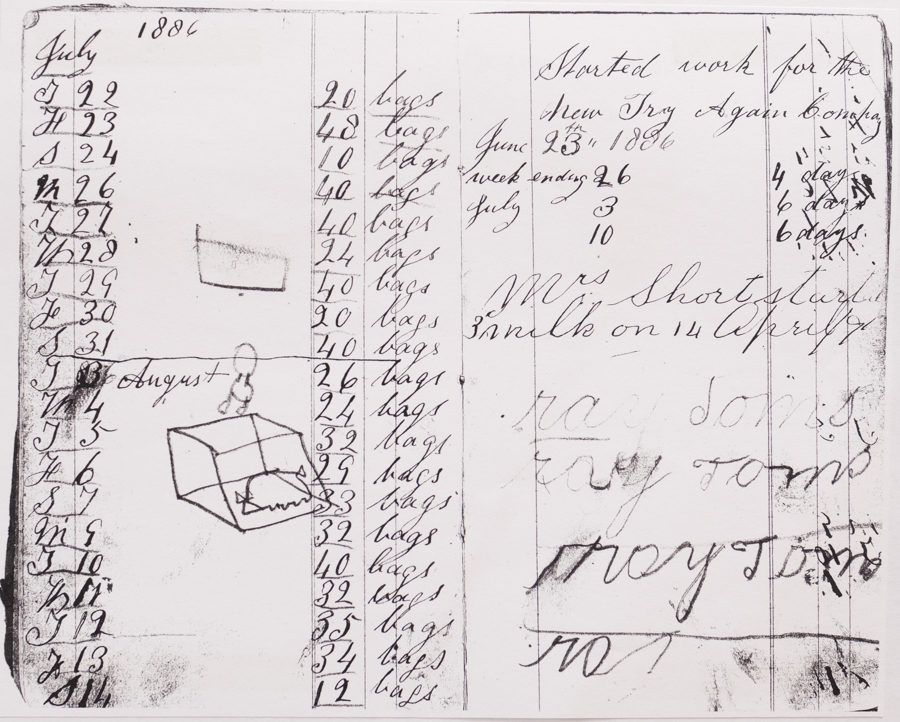 1886
July
T 22 20 bags
F 23 48 bags
S 24 10 bags
M 26 40 bags
T 27 40 bags
W 28 24 bags
T 29 40 bags
F 30 20 bags
S 31 40 bags
T 3 August 26 bags
W 4 24 bags
T 5 32 bags
F 6 29 bags
S 7 33 bags
M 9 32 bags
T 10 40 bags
W 11 32 bags
T 12 35 bags
F 13 34 bags
S 14 12 bags
Started work for the
New Try Again Compay
June 23th 1886
week ending 26 4 days
July 3 6 days
10 6 days
Mrs Short start
milk on 14 April
ray Toms
ray Toms
ray Toms